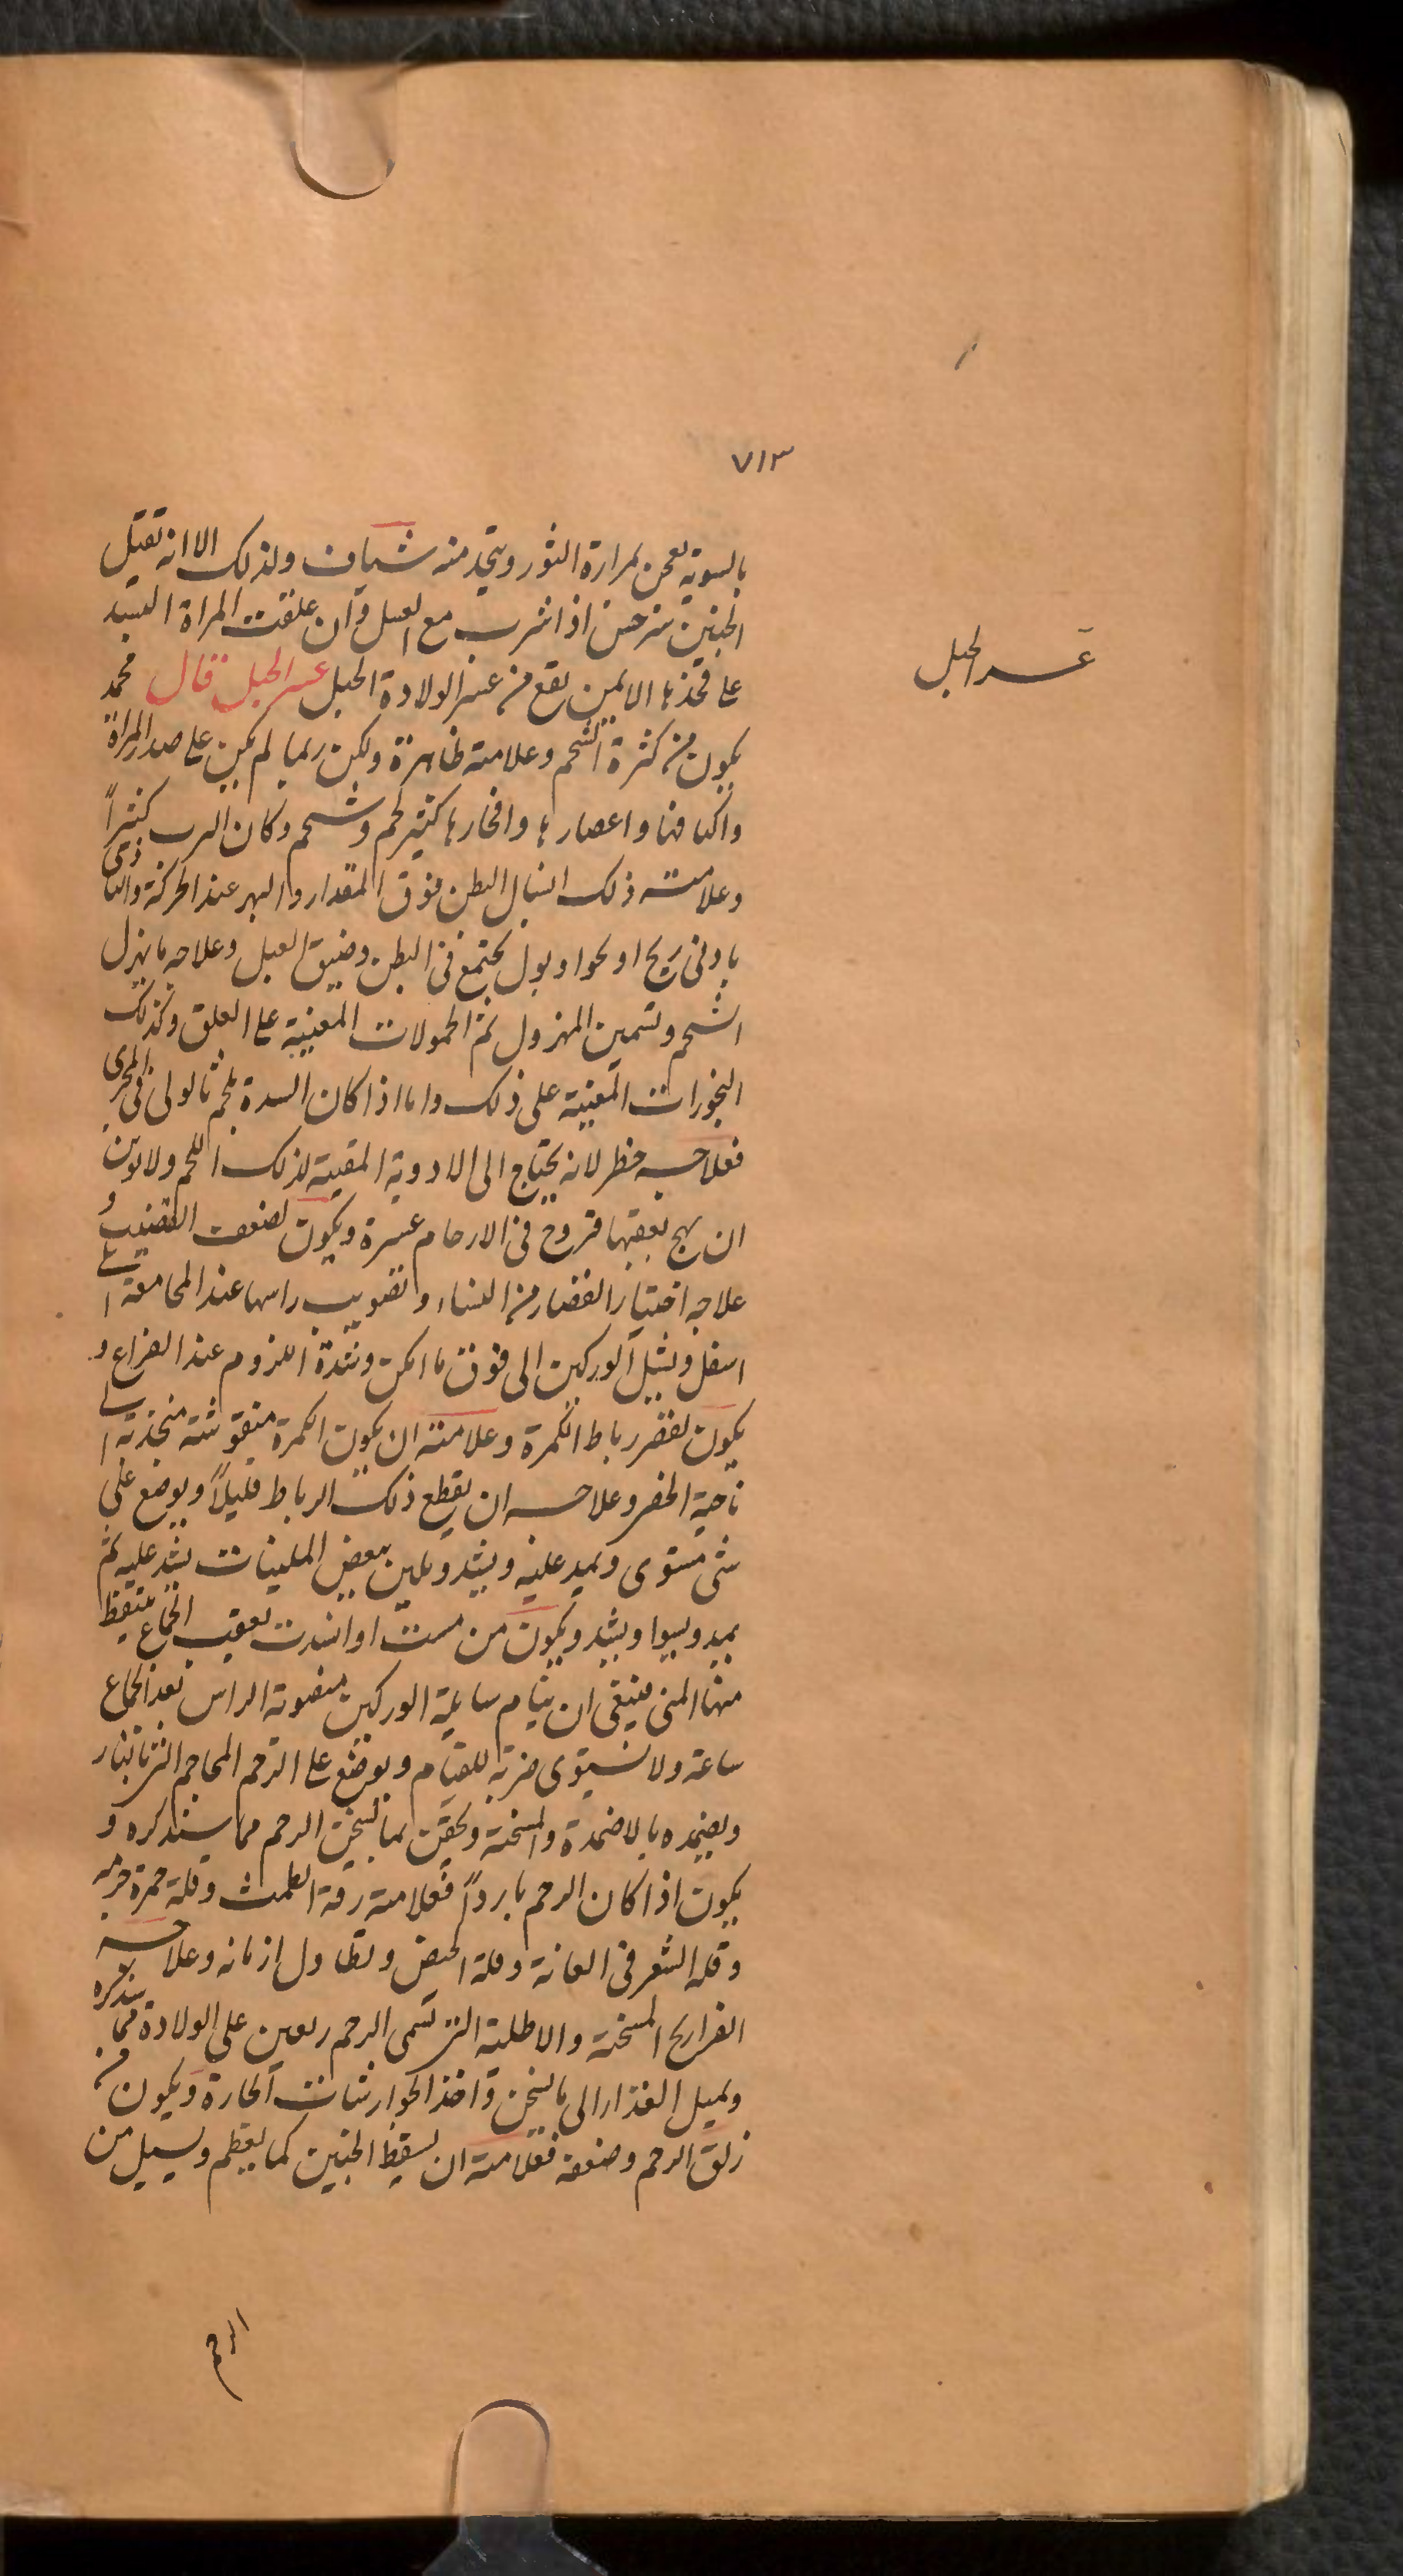 ٧١٣
بالسوية يعجن بمرارة الثور ويتخذ منه شياف ولذلك الا انه تقتل
الجنين سرخس اذا شرب مع العسل وان علقت المراة البسد
على فخذها الايمن يقع من عسر الولادة الحبل عسر الحبل قال محمد
عسر الحبل
يكون من كثرة الشحم وعلامته ظاهرة ولكن ربما لم يكن على صدر المراة
واكتافها واعصارها وافخارها كثير لحم وشحم وكان الرب كثيراً
وعلامته ذلك انبال البطن فوق المقدار والبهر عند الحركة والتاذى
بادنى ريح او نحو او بول يجتمع فى البطن وضيق القبل وعلاجه ما يهزل
الشحم وتسمين المهزول ثم الحمولات المعينة على العلق وكذلك
البخورات المعينة على ذلك واما اذا كان السدة بلحم ثالولى فى المجرى
فعلاجه خطر لانه يحتاج الى الادوية المقيية لذلك اللحم ولا يومن
ان يهيج بعقبها قروح فى الارحام عسرة ويكون لضعف القضيب و
علاجه اختيار القصار من النساء وتصويب راسها عند المجامعة الى
اسفل وبشيل الوركين الى فوق ما امكن وشدة اللزوم عند الفراغ و
يكون لقصر رباط الكمرة وعلامته ان يكون الكمرة منقوشته منجذبة الى
ناحية الخصر وعلاجه ان يقطع ذلك الرباط قليلاً ويوضع على
شى مستوى ويمد عليه ويشد ويلين ببعض الملينات يشد عليه ثم
يمد ويسوا ويشد ويكون من مست او اشدت بعقب الجماع فيسقط
منها المنى فينبغى ان ينام سايلة الوركين منصوبة الراس بعد الجماع
ساعة ولا يستوى ضربة للقيام ويوضع على الرحم المحاجم التى بالنار
ويضمده بالاضمدة والمسخنة ويحقن بما يسخن الرحم مما سنذكره و
يكون اذا كان الرحم بارداً فعلامته رقة الطمث وقلة حمرة حرمه
وقلة الشعر فى العانة وقلة الحيض وتطاول ازمانه وعلاجه
الفرازيج المسخنة والاطلية التى تسمى الرحم ويعين على الولادة مما سنذكره
ويميل الغذاء الى ما يسخن واخذ الجوارشنات الحارة ويكون من
زلق الرحم وضعفه فعلامته ان يسقط الجنين كما يعظم ويسيل من
الرحم